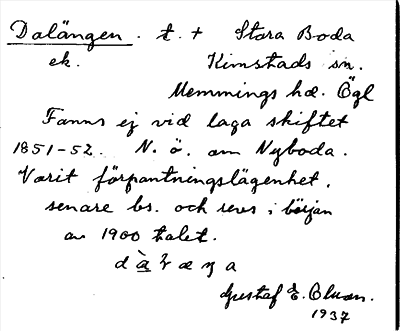 Dalängen. t. + Stora Boda
ek. Kimstads sn.
Memmings hd. Ögl
Fanns ej vid laga skiftet
1851-52. N. ö. om Nyboda.
Varit förpantningslägenhet,
senare bs. och revs i början
av 1900 talet.
Gustaf E. Olson.
1937